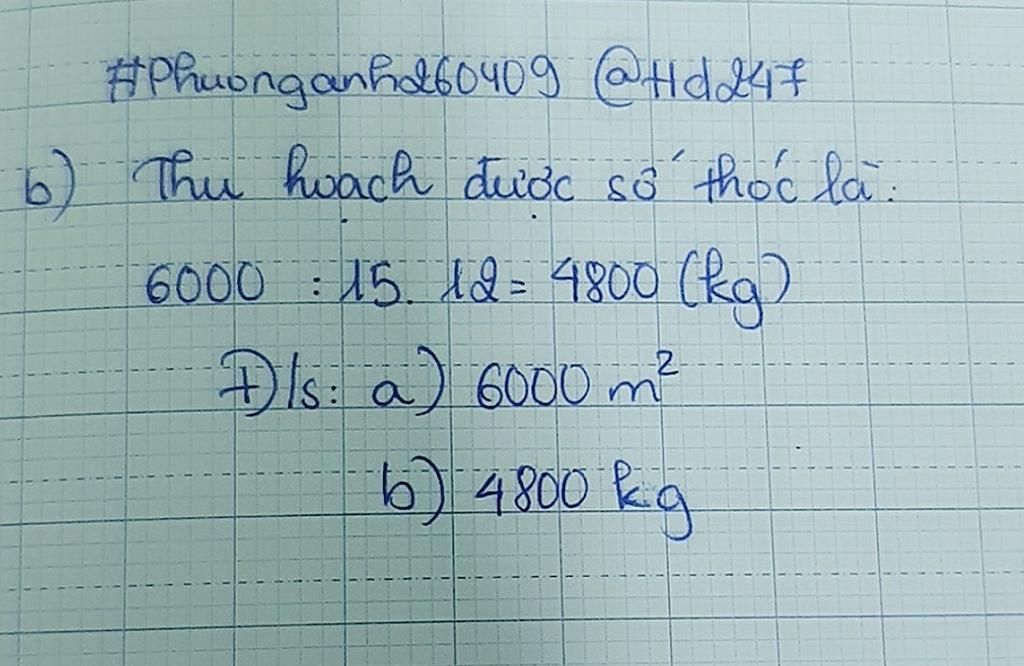 #Phuonganh260409 @Hd247
b) Thu hoạch được số thóc là:
6000 : 15. 12 = 4800 (kg)
Đ/s: a) 6000 m²
b) 4800 kg